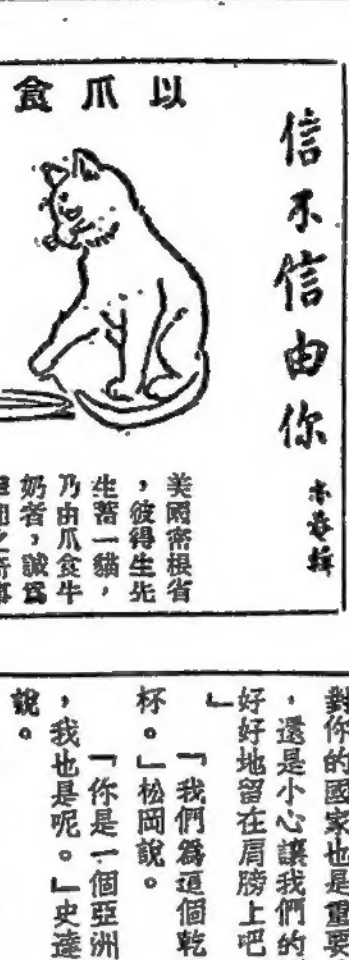 信不信由你
以爪食
美國密根省
，彼得生先
生蓄一貓，
乃由爪食牛
奶者，誠爲
對你的國家也是重要
，還是小心讓我們的
好好地留在肩膀上吧
」
「我們爲這個乾
杯。」松岡說。
「你是一個亞洲
，我也是呢。」史達
說。